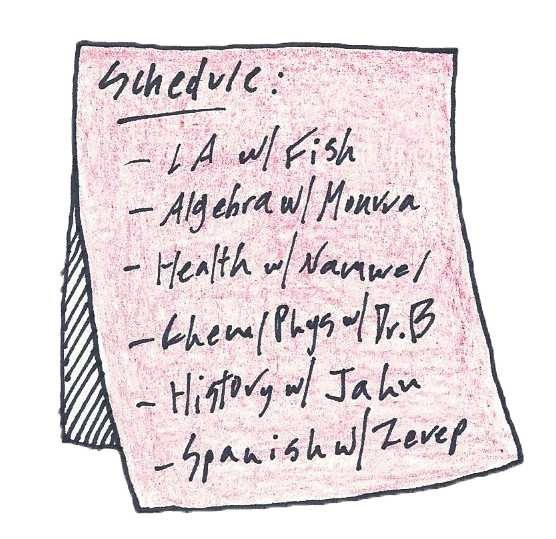 Schedule:
- LA w/ Fish
- Algebra w/ Mourra
- Health w/
- Chem/Phys w/ Dr.B
- History w/ Jahn
- Spanish w/ Zerep